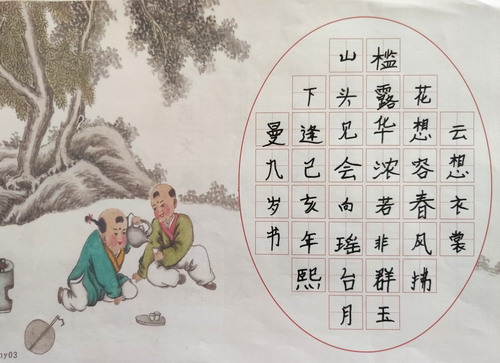 云想衣裳
花想容春风拂
槛露华浓若非群玉
山头见会向瑶台月
下逢己亥年熙
曼九岁书